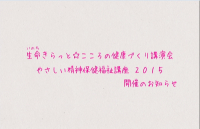 いのち
生命きらっと☆こころの健康づくり講演会
やさしい精神保健福祉講座 2015
開催のお知らせ